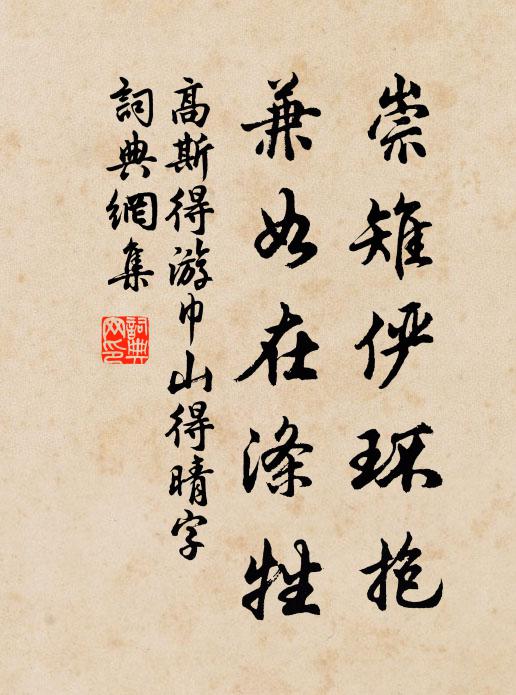 崇雉俨环抱
兼如在涤牲
高斯得游巾山得晴字
詞典網集
詞典网印